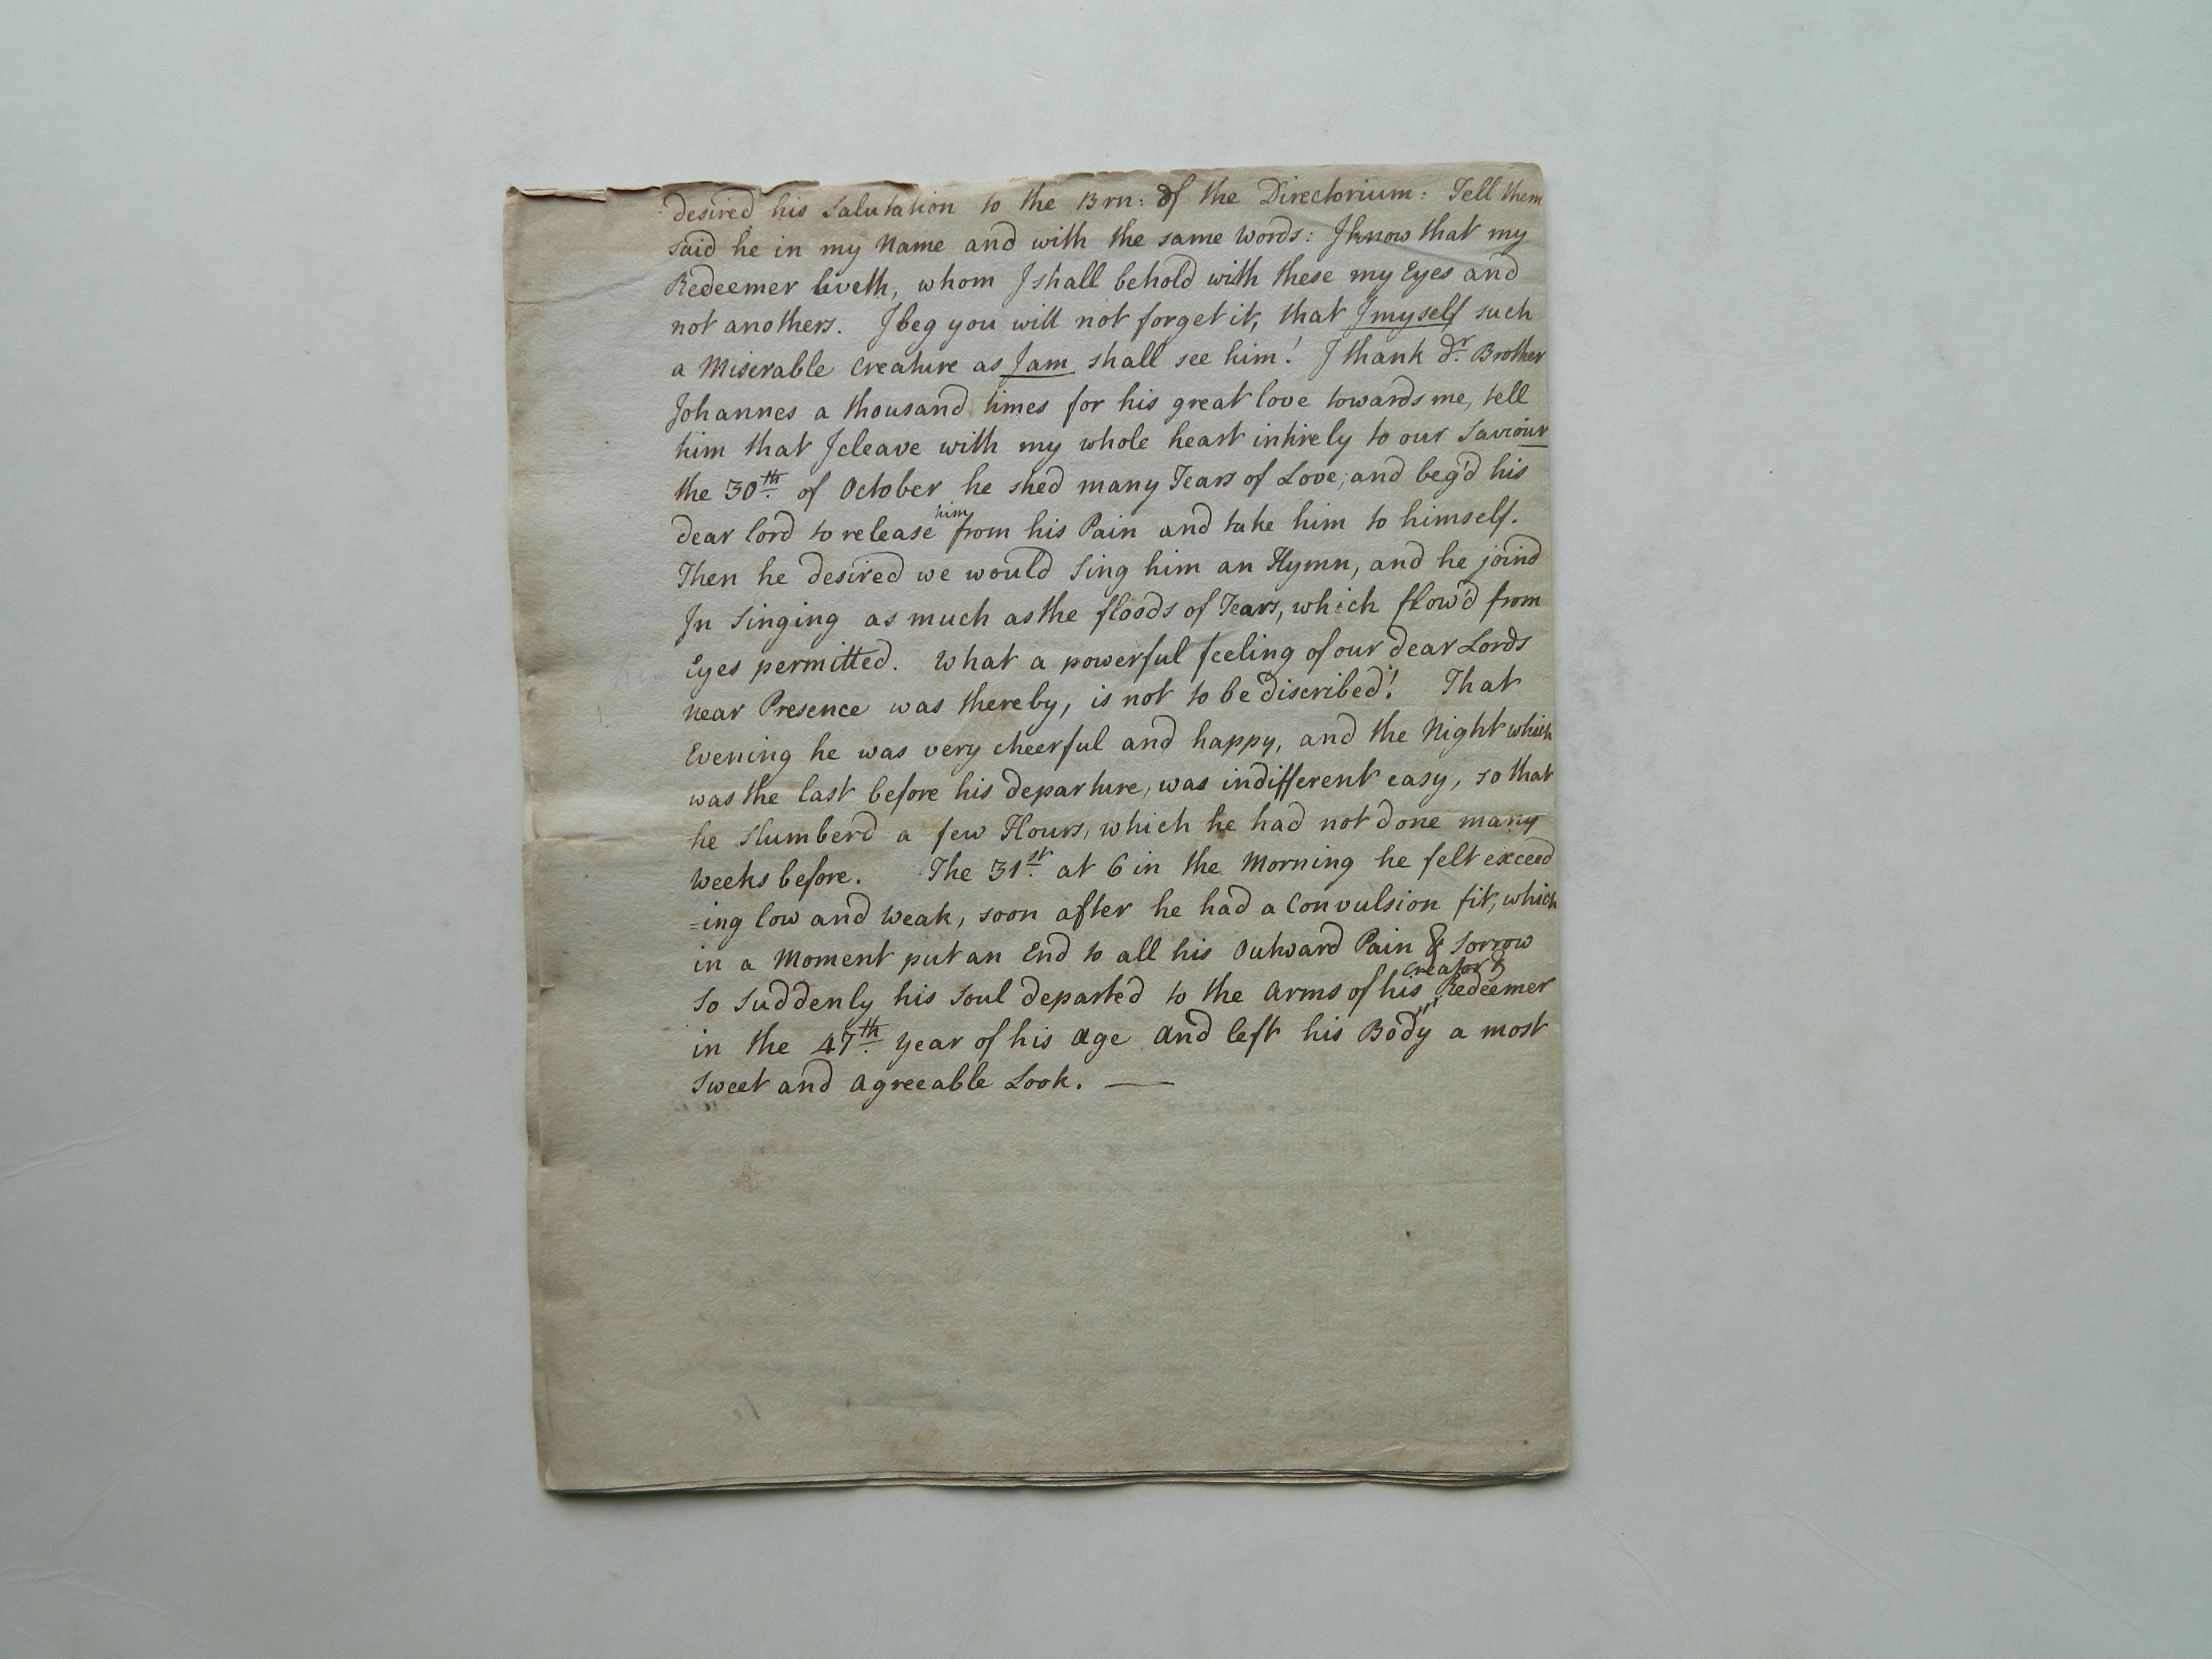 desired his Salutation to the Brn: of the Directorium: Tell them
said he in my Name and with the same Words: I know that my
Redeemer liveth, whom I shall behold with these my Eyes and
not anothers. I beg you will not forget it, that I myself such
a Miserable Creature as I am shall see him! I thank dr. Brother
Johannes a thousand times for his great love towards me, tell
him that I cleave with my whole heart intirely to our Saviour
the 30th. of October he shed many Tears of Love, and beg'd his
dear lord to release him from his Pain and take him to himself.
Then he desired we would Sing him an Hymn, and he joind
In Singing as much as the floods of Tears, which flow'd from
Eyes permitted. What a powerful feeling of our dear Lords
near Presence was thereby, is not to be discribed! That
Evening he was very cheerful and happy, and the Night which
was the last before his departure, was indifferent easy, so that
he Slumberd a few Hours, which he had not done many
Weeks before. The 31st. at 6 in the Morning he felt exceed
=ing low and Weak, soon after he had a Convulsion fit, which
in a Moment put an End to all his Outward Pain & Sorrow
So Suddenly his Soul departed to the Arms of his Creator & Redeemer
in the 47th. Year of his Age and left his Body a most
Sweet and Agreeable Look. —